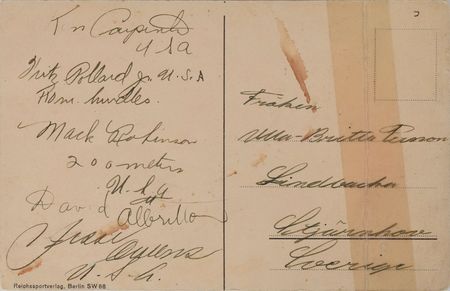 Ken Carpenter
USA
Fritz Pollard Jr. U.S.A
110m. hurdles.
Mack Robinson
200 meters
U.S.A
David Albritton
Jesse Owens
U.S.A.
Reichssportverlag, Berlin SW 68
Fröken
Ulla-Britta Persson
Lindbacka
Stjärnhov
Sverige